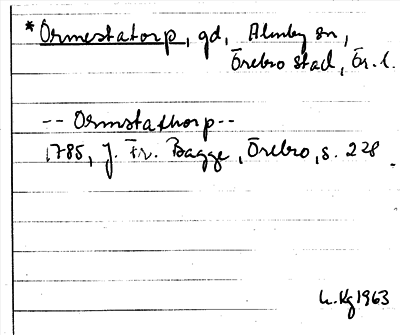 *Ormestatorp, gd, Almby sn,
Örebro stad, Ör. l.
-- Ormstathorp --
1785, J. Fr. Bagge, Örebro, s. 228.
L. Hg 1963